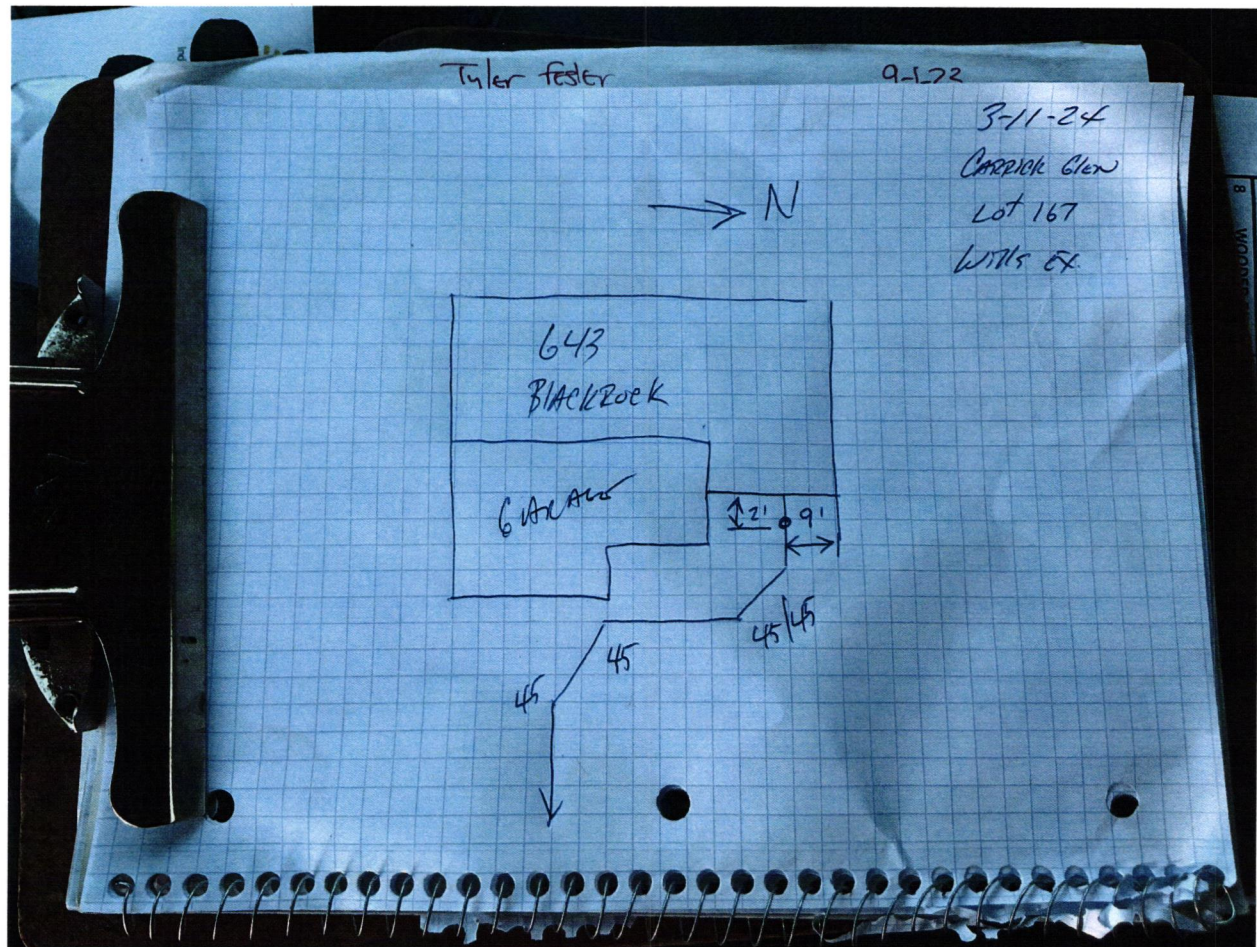 Tyler fesler 9-1-22
3-11-24
CARRICK Glen
Lot 167
Wills EX.
N
643
BlACKROCK
GARAGE
2' 9'
45/45
45
45
Ind
8